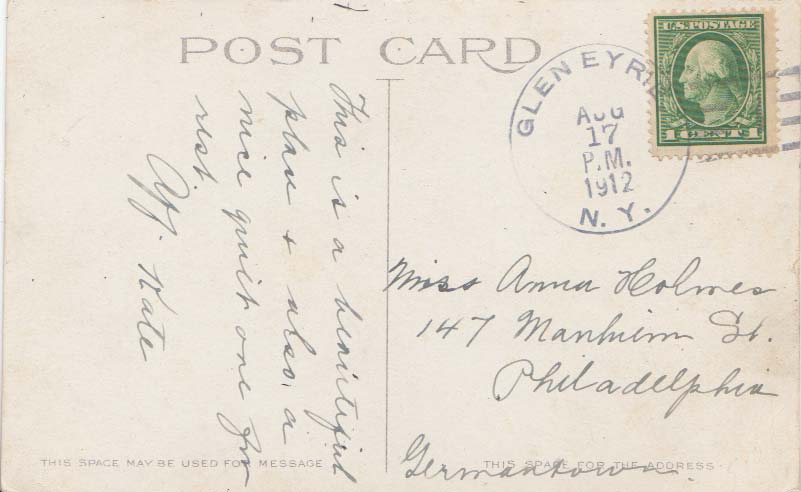 POST CARD
This is a beautiful
place & also a
nice quiet one for
rest.
Aff. Kate
GLEN EYRIE
AUG
17
P.M.
1912
N. Y.
U.S. POSTAGE
1 CENT 1
Miss Anna Holmes
147 Manheim St.
Philadelphia
Germantown.
THIS SPACE MAY BE USED FOR MESSAGE
THIS SPACE FOR THE ADDRESS